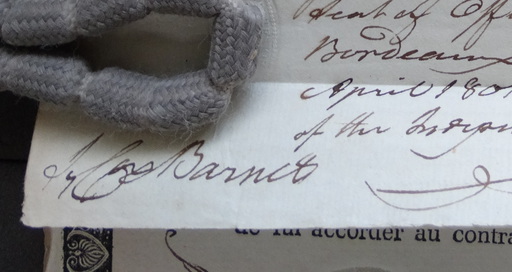 Seal of Off
Bordeaux
April 180
of the Indepen
Is/ Cox Barnet
de lui accorder au contra